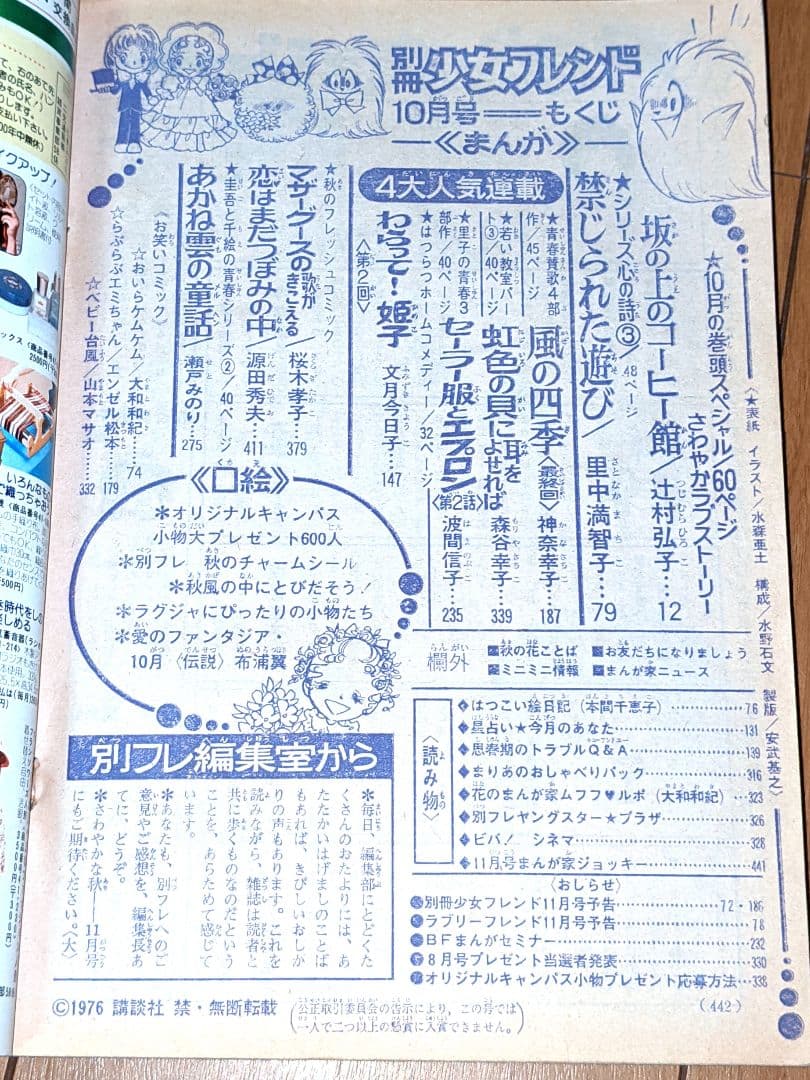 別冊 少女フレンド
10月号＝＝もくじ
―≪まんが≫―
〈★表紙 イラスト／水森亜土 構成／水野石文
製版／安武基之〉
★10月の巻頭スペシャル／60ページ
さわやかラブストーリー
坂の上のコーヒー館／辻村弘子…12
★シリーズ心の詩③／48ページ
禁じられた遊び／里中満智子…79
4大人気連載
★青春賛歌4部作／45ページ
風の四季〈最終回〉神奈幸子…187
★若い教室パート③／40ページ
虹色の貝に耳をよせれば 森谷幸子…339
★里子の青春3部作／40ページ
セーラー服とエプロン〈第2話〉波間信子…235
★はつらつホームコメディー／32ページ
わらって！姫子〈第2回〉文月今日子…147
★秋のフレッシュコミック
マザーグースの歌がきこえる／桜木孝子…379
恋はまだつぼみの中／源田秀夫…411
★圭吾と千絵の青春シリーズ②／40ページ
あかね雲の童話／瀬戸みのり…275
〈お笑いコミック〉
☆おいらケムケム／大和和紀…74
☆らぶらぶエミちゃん／エンゼル松本…179
☆ベビー台風／山本マサオ…332
≪口絵≫
＊オリジナルキャンパス
小物大プレゼント600人
＊別フレ 秋のチャームシール
＊秋風の中にとびだそう！
＊ラグジャにぴったりの小物たち
＊愛のファンタジア・
10月〈伝説〉布浦翼
欄外
■秋の花ことば ■お友だちになりましょう
■ミニミニ情報 ■まんが家ニュース
〈読み物〉
◆はつこい絵日記（本間千恵子）…76
◆星占い★今月のあなた…131
◆思春期のトラブルQ＆A…139
◆まりあのおしゃべりパック…316
◆花のまんが家ムフフ♥ルポ（大和和紀）…323
◆別フレヤングスター★プラザ…326
◆ビバ！ シネマ…328
◆11月号まんが家ジョッキー…441
〈おしらせ〉
●別冊少女フレンド11月号予告…72・186
●ラブリーフレンド11月号予告…78
●BFまんがセミナー…232
●8月号プレゼント当選者発表…330
●オリジナルキャンパス小物プレゼント応募方法…338
別フレ編集室から
＊毎日、編集部にとどくた
くさんのおたよりには、あ
たたかいはげましのことば
もあれば、きびしいおしか
りの声もあります。これを
読みながら、雑誌は読者と
共に歩くものなのだという
ことを、あらためて感じて
います。
＊あなたも、別フレへのご
意見やご感想を、編集長あ
てに、どうぞ。
＊さわやかな秋――11月号
にもご期待ください。〈大〉
©1976 講談社 禁・無断転載
（公正取引委員会の告示により、この号では
一人で二つ以上の懸賞に入賞できません。）
（442）